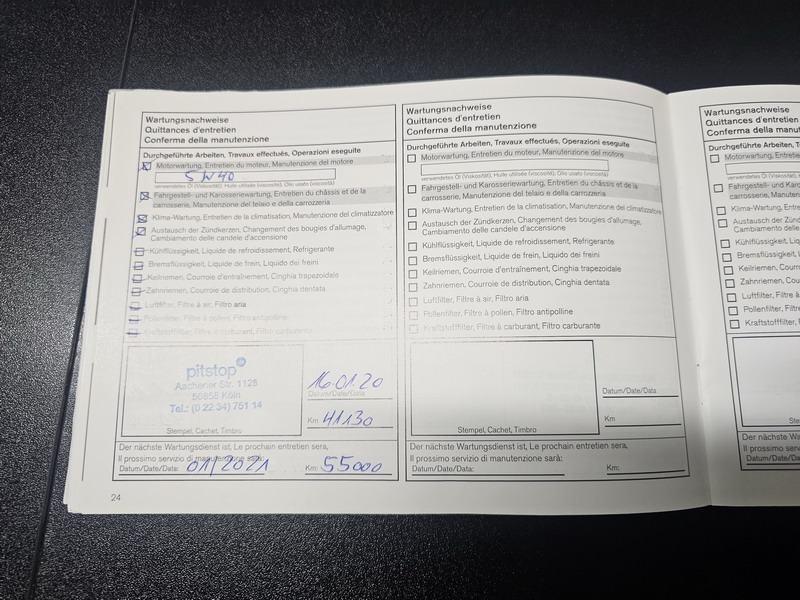 Wartungsnachweise
Quittances d'entretien
Conferma della manutenzione
Durchgeführte Arbeiten, Travaux effectués, Operazioni eseguite
Motorwartung, Entretien du moteur, Manutenzione del motore
5W40
verwendetes Öl (Viskosität), Huile utilisée (viscosité), Olio usato (viscosità)
Fahrgestell- und Karosseriewartung, Entretien du châssis et de la
carrosserie, Manutenzione del telaio e della carrozzeria
Klima-Wartung, Entretien de la climatisation, Manutenzione del climatizzatore
Austausch der Zündkerzen, Changement des bougies d'allumage,
Cambiamento delle candele d'accensione
Kühlflüssigkeit, Liquide de refroidissement, Refrigerante
Bremsflüssigkeit, Liquide de frein, Liquido dei freini
Keilriemen, Courroie d'entraînement, Cinghia trapezoidale
Zahnriemen, Courroie de distribution, Cinghia dentata
Luftfilter, Filtre à air, Filtro aria
Pollenfilter, Filtro à pollen, Filtro antipolline
Kraftstofffilter, Filtre à carburant, Filtro carburante
pitstop
Aachener Str. 1128
50858 Köln
Tel.: (0 22 34) 751 14
Stempel, Cachet, Timbro
16.01.20
Datum/Date/Data
Km 41130
Der nächste Wartungsdienst ist, Le prochain entretien sera,
Il prossimo servizio di manutenzione sarà:
Datum/Date/Data: 01/2021 Km: 55000
24
Wartungsnachweise
Quittances d'entretien
Conferma della manutenzione
Durchgeführte Arbeiten, Travaux effectués, Operazioni eseguite
Motorwartung, Entretien du moteur, Manutenzione del motore
verwendetes Öl (Viskosität), Huile utilisée (viscosité), Olio usato (viscosità)
Fahrgestell- und Karosseriewartung, Entretien du châssis et de la
carrosserie, Manutenzione del telaio e della carrozzeria
Klima-Wartung, Entretien de la climatisation, Manutenzione del climatizzatore
Austausch der Zündkerzen, Changement des bougies d'allumage,
Cambiamento delle candele d'accensione
Kühlflüssigkeit, Liquide de refroidissement, Refrigerante
Bremsflüssigkeit, Liquide de frein, Liquido dei freini
Keilriemen, Courroie d'entraînement, Cinghia trapezoidale
Zahnriemen, Courroie de distribution, Cinghia dentata
Luftfilter, Filtre à air, Filtro aria
Pollenfilter, Filtro à pollen, Filtro antipolline
Kraftstofffilter, Filtre à carburant, Filtro carburante
Stempel, Cachet, Timbro
Datum/Date/Data
Km
Der nächste Wartungsdienst ist, Le prochain entretien sera,
Il prossimo servizio di manutenzione sarà:
Datum/Date/Data: Km:
Wartungsnachweise
Quittances d'entretien
Conferma della manu
Durchgeführte Arbeiten, T
Motorwartung, Entretien
verwendetes Öl (Viskosität)
Fahrgestell- und Karosse
carrosserie, Manutenzio
Klima-Wartung, Entretie
Austausch der Zündker
Cambiamento delle can
Kühlflüssigkeit, Liquide
Bremsflüssigkeit, Liquid
Keilriemen, Courroie d
Zahnriemen, Courroie
Luftfilter, Filtre à air, F
Pollenfilter, Filtro à po
Kraftstofffilter, Filtre à
Stem
Der nächste Wartung
Il prossimo servizio d
Datum/Date/Data